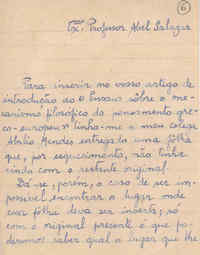 6
Exº. Professor Abel Salazar
Para inserir no vosso artigo de
introdução ao "Ensaio sôbre o me-
canismo filosófico do pensamento gre-
co-europeu" tinha-me o meu colega
Abílio Mendes entregado uma folha
que, por esquecimento, não tinha
vindo com o restante original.
Dá-se, porém, o caso de ser im-
possível encontrar o lugar onde
essa folha deva ser inserta; só
com o original presente é que po-
deremos saber qual o lugar que lhe